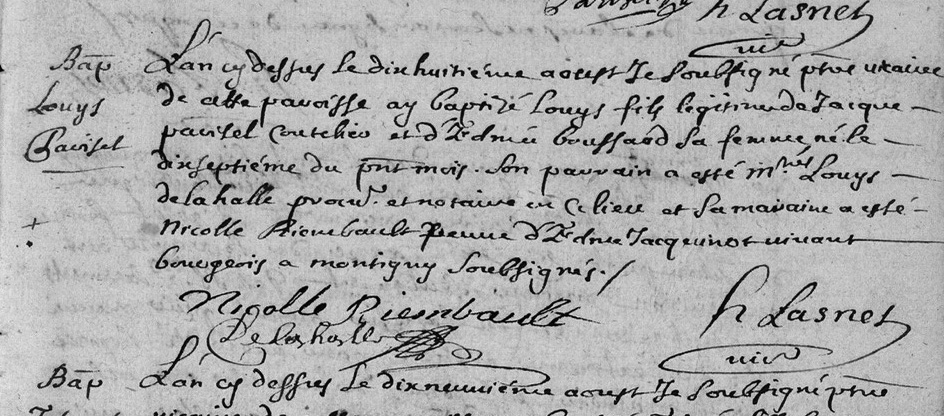 h Lasnet
vic
Bap L'an cy dessus le dixhuitiéme aoust Je soubsigné ptre vicaire
Louys de cette paroisse ay baptizé Louys fils legitime de Jacque
Parisel parisel coutelier et d'Edmée boussard sa femme né le
dixseptiéme du pnt mois. son parrain a esté me Louys
de la halle procur. et notaire en ce lieu et sa maraine a esté
+ Nicolle Riembault veuve d'Edme Jacquinot vivant
bourgeois a montigny soubsignés./
Nicolle Riembault h Lasnet
De la halle vic
Bap L'an cy dessus le dixneuviéme aoust Je soubsigné ptre